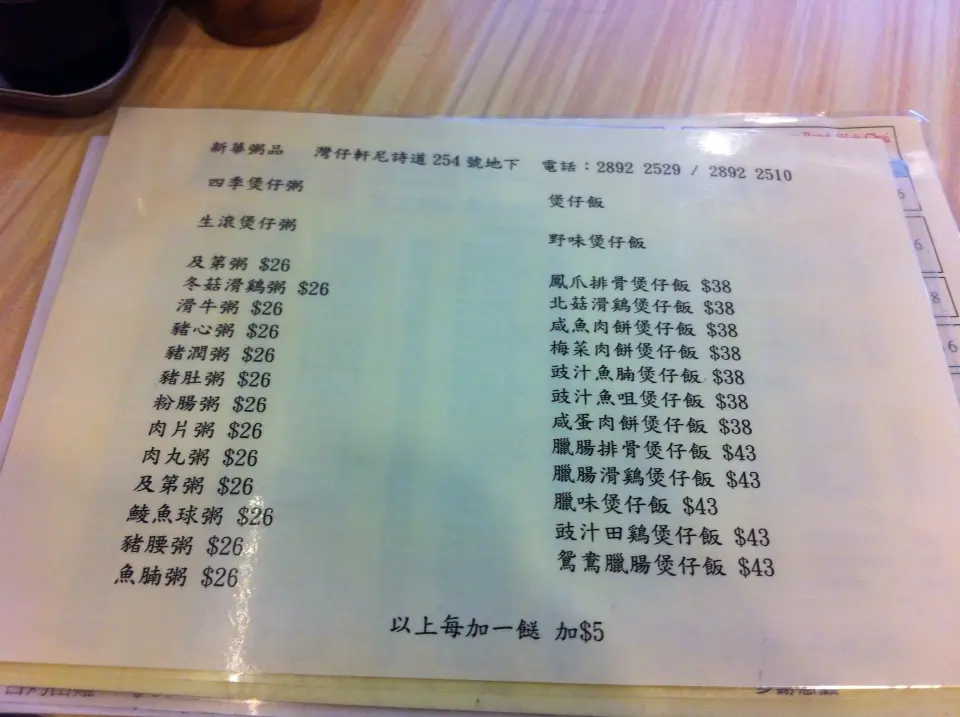 新華粥品 灣仔軒尼詩道 254 號地下 電話：2892 2529 / 2892 2510
四季煲仔粥
生滾煲仔粥
及第粥 $26
冬菇滑鷄粥 $26
滑牛粥 $26
豬心粥 $26
豬潤粥 $26
豬肚粥 $26
粉腸粥 $26
肉片粥 $26
肉丸粥 $26
及第粥 $26
鯪魚球粥 $26
豬腰粥 $26
魚腩粥 $26
煲仔飯
野味煲仔飯
鳳爪排骨煲仔飯 $38
北菇滑鷄煲仔飯 $38
咸魚肉餅煲仔飯 $38
梅菜肉餅煲仔飯 $38
豉汁魚腩煲仔飯 $38
豉汁魚咀煲仔飯 $38
咸蛋肉餅煲仔飯 $38
臘腸排骨煲仔飯 $43
臘腸滑鷄煲仔飯 $43
臘味煲仔飯 $43
豉汁田鷄煲仔飯 $43
鴛鴦臘腸煲仔飯 $43
以上每加一餸 加$5